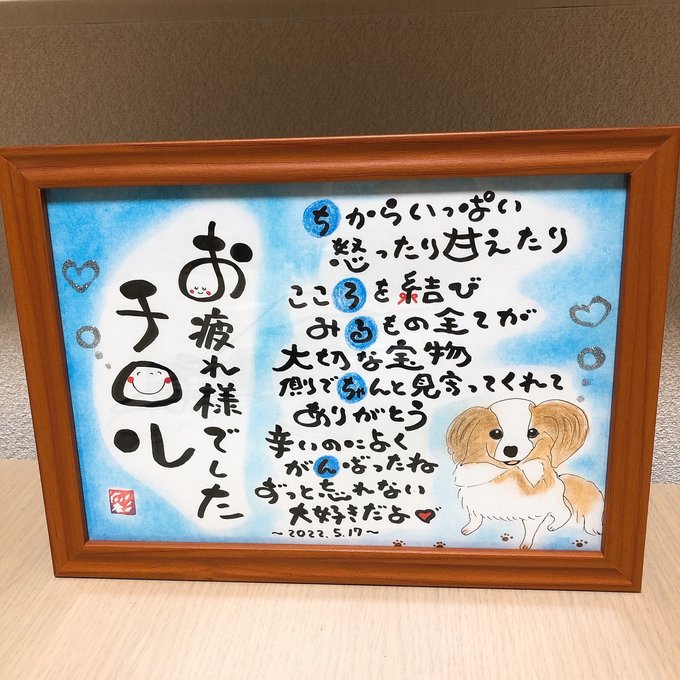 お疲れ様でした
チロル
ちからいっぱい
怒ったり甘えたり
こころを結び
みるもの全てが
大切な宝物
側でちゃんと見守ってくれて
ありがとう
辛いのによく
がんばったね
ずっと忘れない
大好きだよ
～2022.5.17～